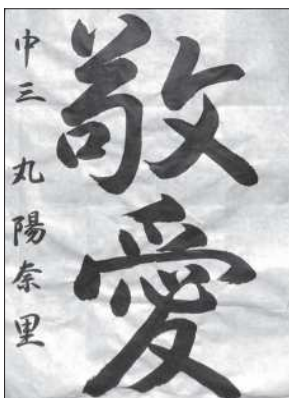 敬愛
中三 丸陽奈里